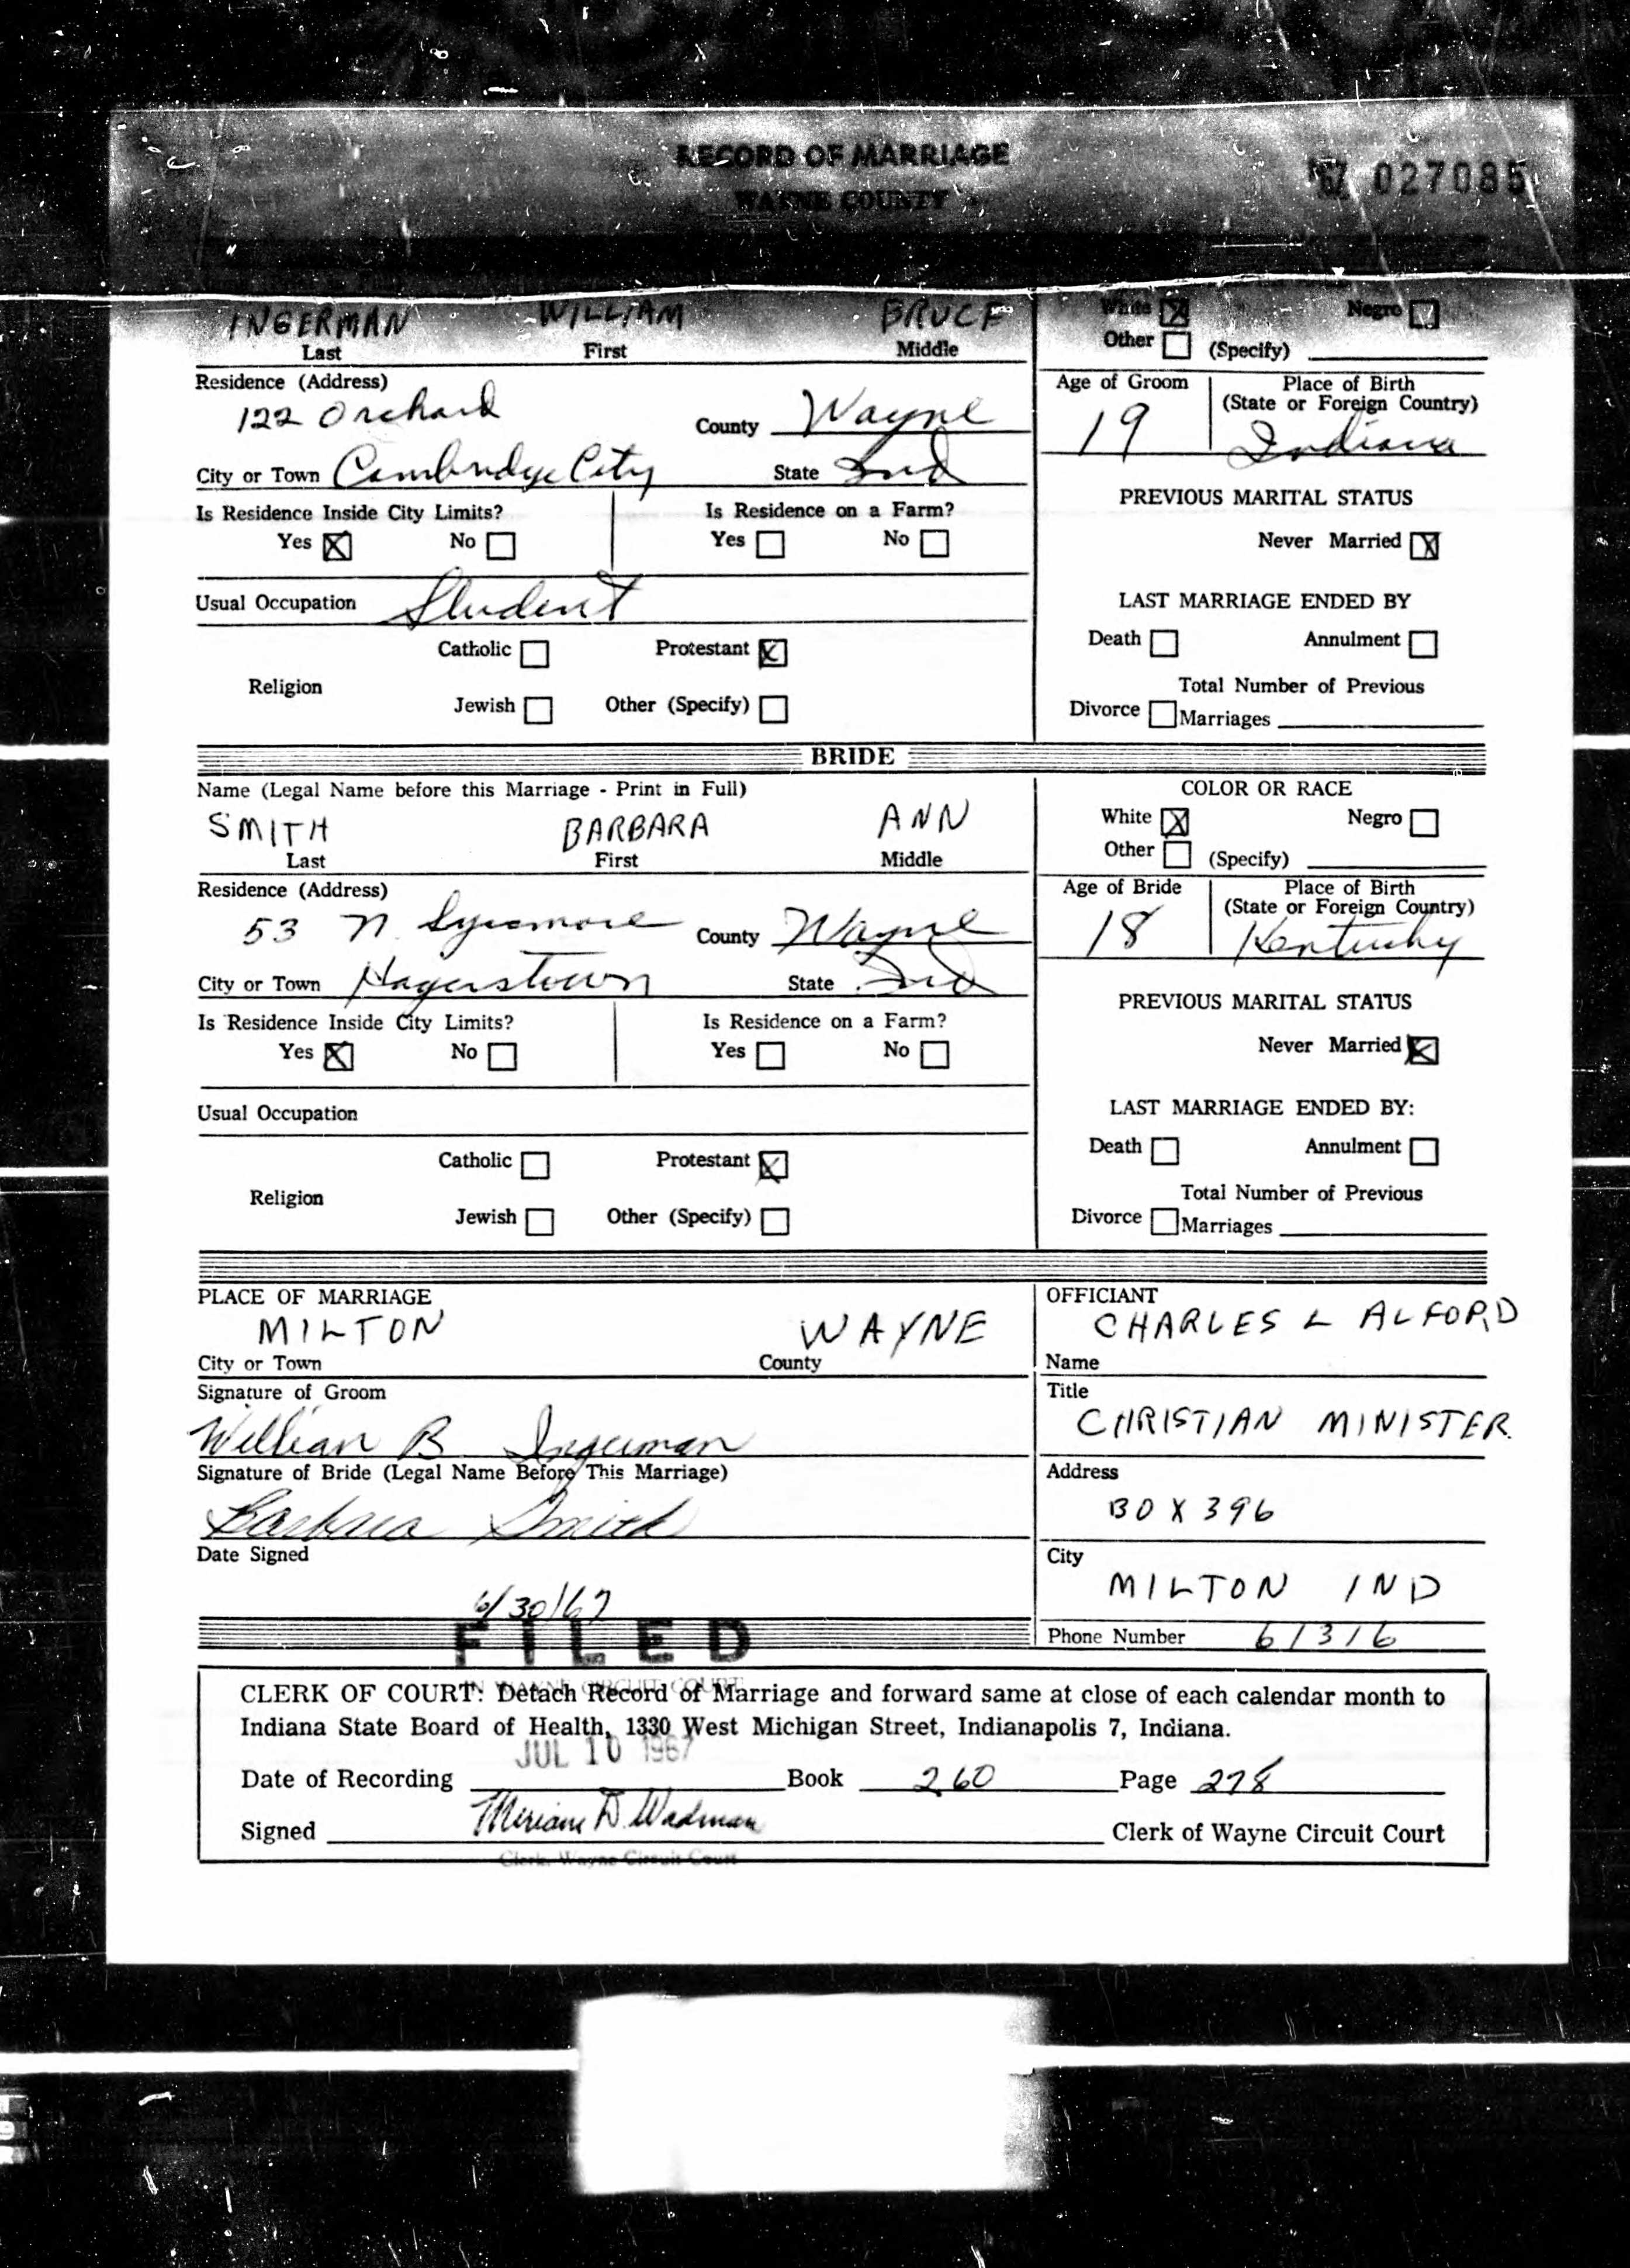 RECORD OF MARRIAGE
WAYNE COUNTY
67 027085
INGERMAN WILLIAM BRUCE
Last First Middle
White ☒ Negro ☐
Other ☐ (Specify)
Residence (Address)
122 Orchard
County Wayne
City or Town Cambridge City State Ind
Age of Groom 19
Place of Birth
(State or Foreign Country)
Indiana
Is Residence Inside City Limits?
Yes ☒ No ☐
Is Residence on a Farm?
Yes ☐ No ☐
PREVIOUS MARITAL STATUS
Never Married ☒
Usual Occupation Student
LAST MARRIAGE ENDED BY
Death ☐ Annulment ☐
Catholic ☐ Protestant ☒
Religion
Jewish ☐ Other (Specify) ☐
Total Number of Previous
Divorce ☐ Marriages
BRIDE
Name (Legal Name before this Marriage - Print in Full)
SMITH BARBARA ANN
Last First Middle
COLOR OR RACE
White ☒ Negro ☐
Other ☐ (Specify)
Residence (Address)
53 N. Sycamore County Wayne
City or Town Hagerstown State Ind
Age of Bride 18
Place of Birth
(State or Foreign Country)
Kentucky
Is Residence Inside City Limits?
Yes ☒ No ☐
Is Residence on a Farm?
Yes ☐ No ☐
PREVIOUS MARITAL STATUS
Never Married ☒
Usual Occupation
LAST MARRIAGE ENDED BY:
Death ☐ Annulment ☐
Catholic ☐ Protestant ☒
Religion
Jewish ☐ Other (Specify) ☐
Total Number of Previous
Divorce ☐ Marriages
PLACE OF MARRIAGE
MILTON WAYNE
City or Town County
OFFICIANT
CHARLES L ALFORD
Name
Signature of Groom
William B Ingerman
Title
CHRISTIAN MINISTER
Signature of Bride (Legal Name Before This Marriage)
Barbara Smith
Address
BOX 396
Date Signed
6/30/67
City
MILTON IND
Phone Number 61316
FILED
IN WAYNE CIRCUIT COURT
CLERK OF COURT: Detach Record of Marriage and forward same at close of each calendar month to
Indiana State Board of Health, 1330 West Michigan Street, Indianapolis 7, Indiana.
JUL 10 1967
Date of Recording Book 260 Page 278
Signed Miriam D. Wadman Clerk of Wayne Circuit Court
Clerk, Wayne Circuit Court